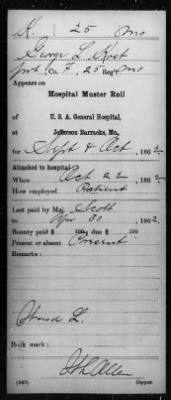 K. | 25 | Mo
George L. Rost
pvt, Co. F, 25 Reg't Mo
Appears on
Hospital Muster Roll
of
U. S. A. General Hospital,
at
Jefferson Barracks, Mo.,
for Sept & Oct, 1862.
Attached to hospital
When Oct 22, 1862
How employed Patient
Last paid by Maj. Scott
to Apr 30, 1862.
Bounty paid $ 100; due $ 100
Present or absent Present
Remarks:
Book mark:
(543) Copyist.